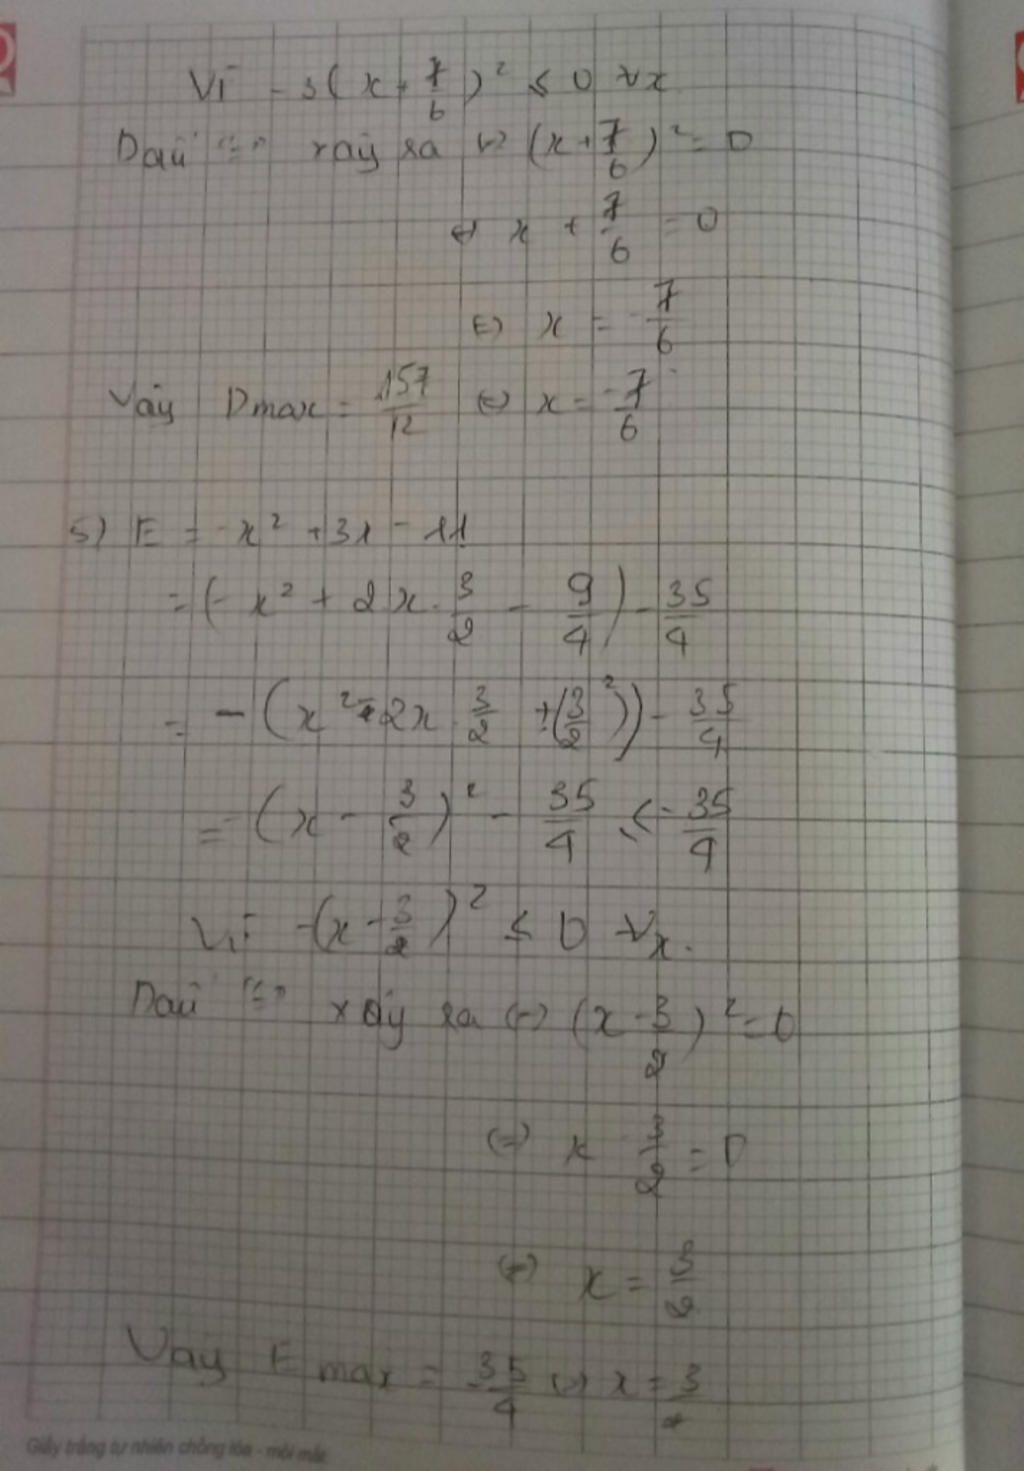 Vì - 3(x + 7/6)² ≤ 0 ∀x
Dấu "=" xảy ra ⇔ (x + 7/6)² = 0
⇔ x + 7/6 = 0
⇔ x = -7/6
Vậy Dmax = 157/12 ⇔ x = -7/6
5) E = -x² + 3x - 11
= (-x² + 2x . 3/2 - 9/4) - 35/4
= - (x² - 2x . 3/2 + (3/2)²) - 35/4
= -(x - 3/2)² - 35/4 ≤ - 35/4
Vì -(x - 3/2)² ≤ 0 ∀x.
Dấu "=" xảy ra ⇔ (x - 3/2)² = 0
⇔ x - 3/2 = 0
⇔ x = 3/2
Vậy E max = -35/4 ⇔ x = 3/2
Giấy trắng tự nhiên chống lóa - mỏi mắt